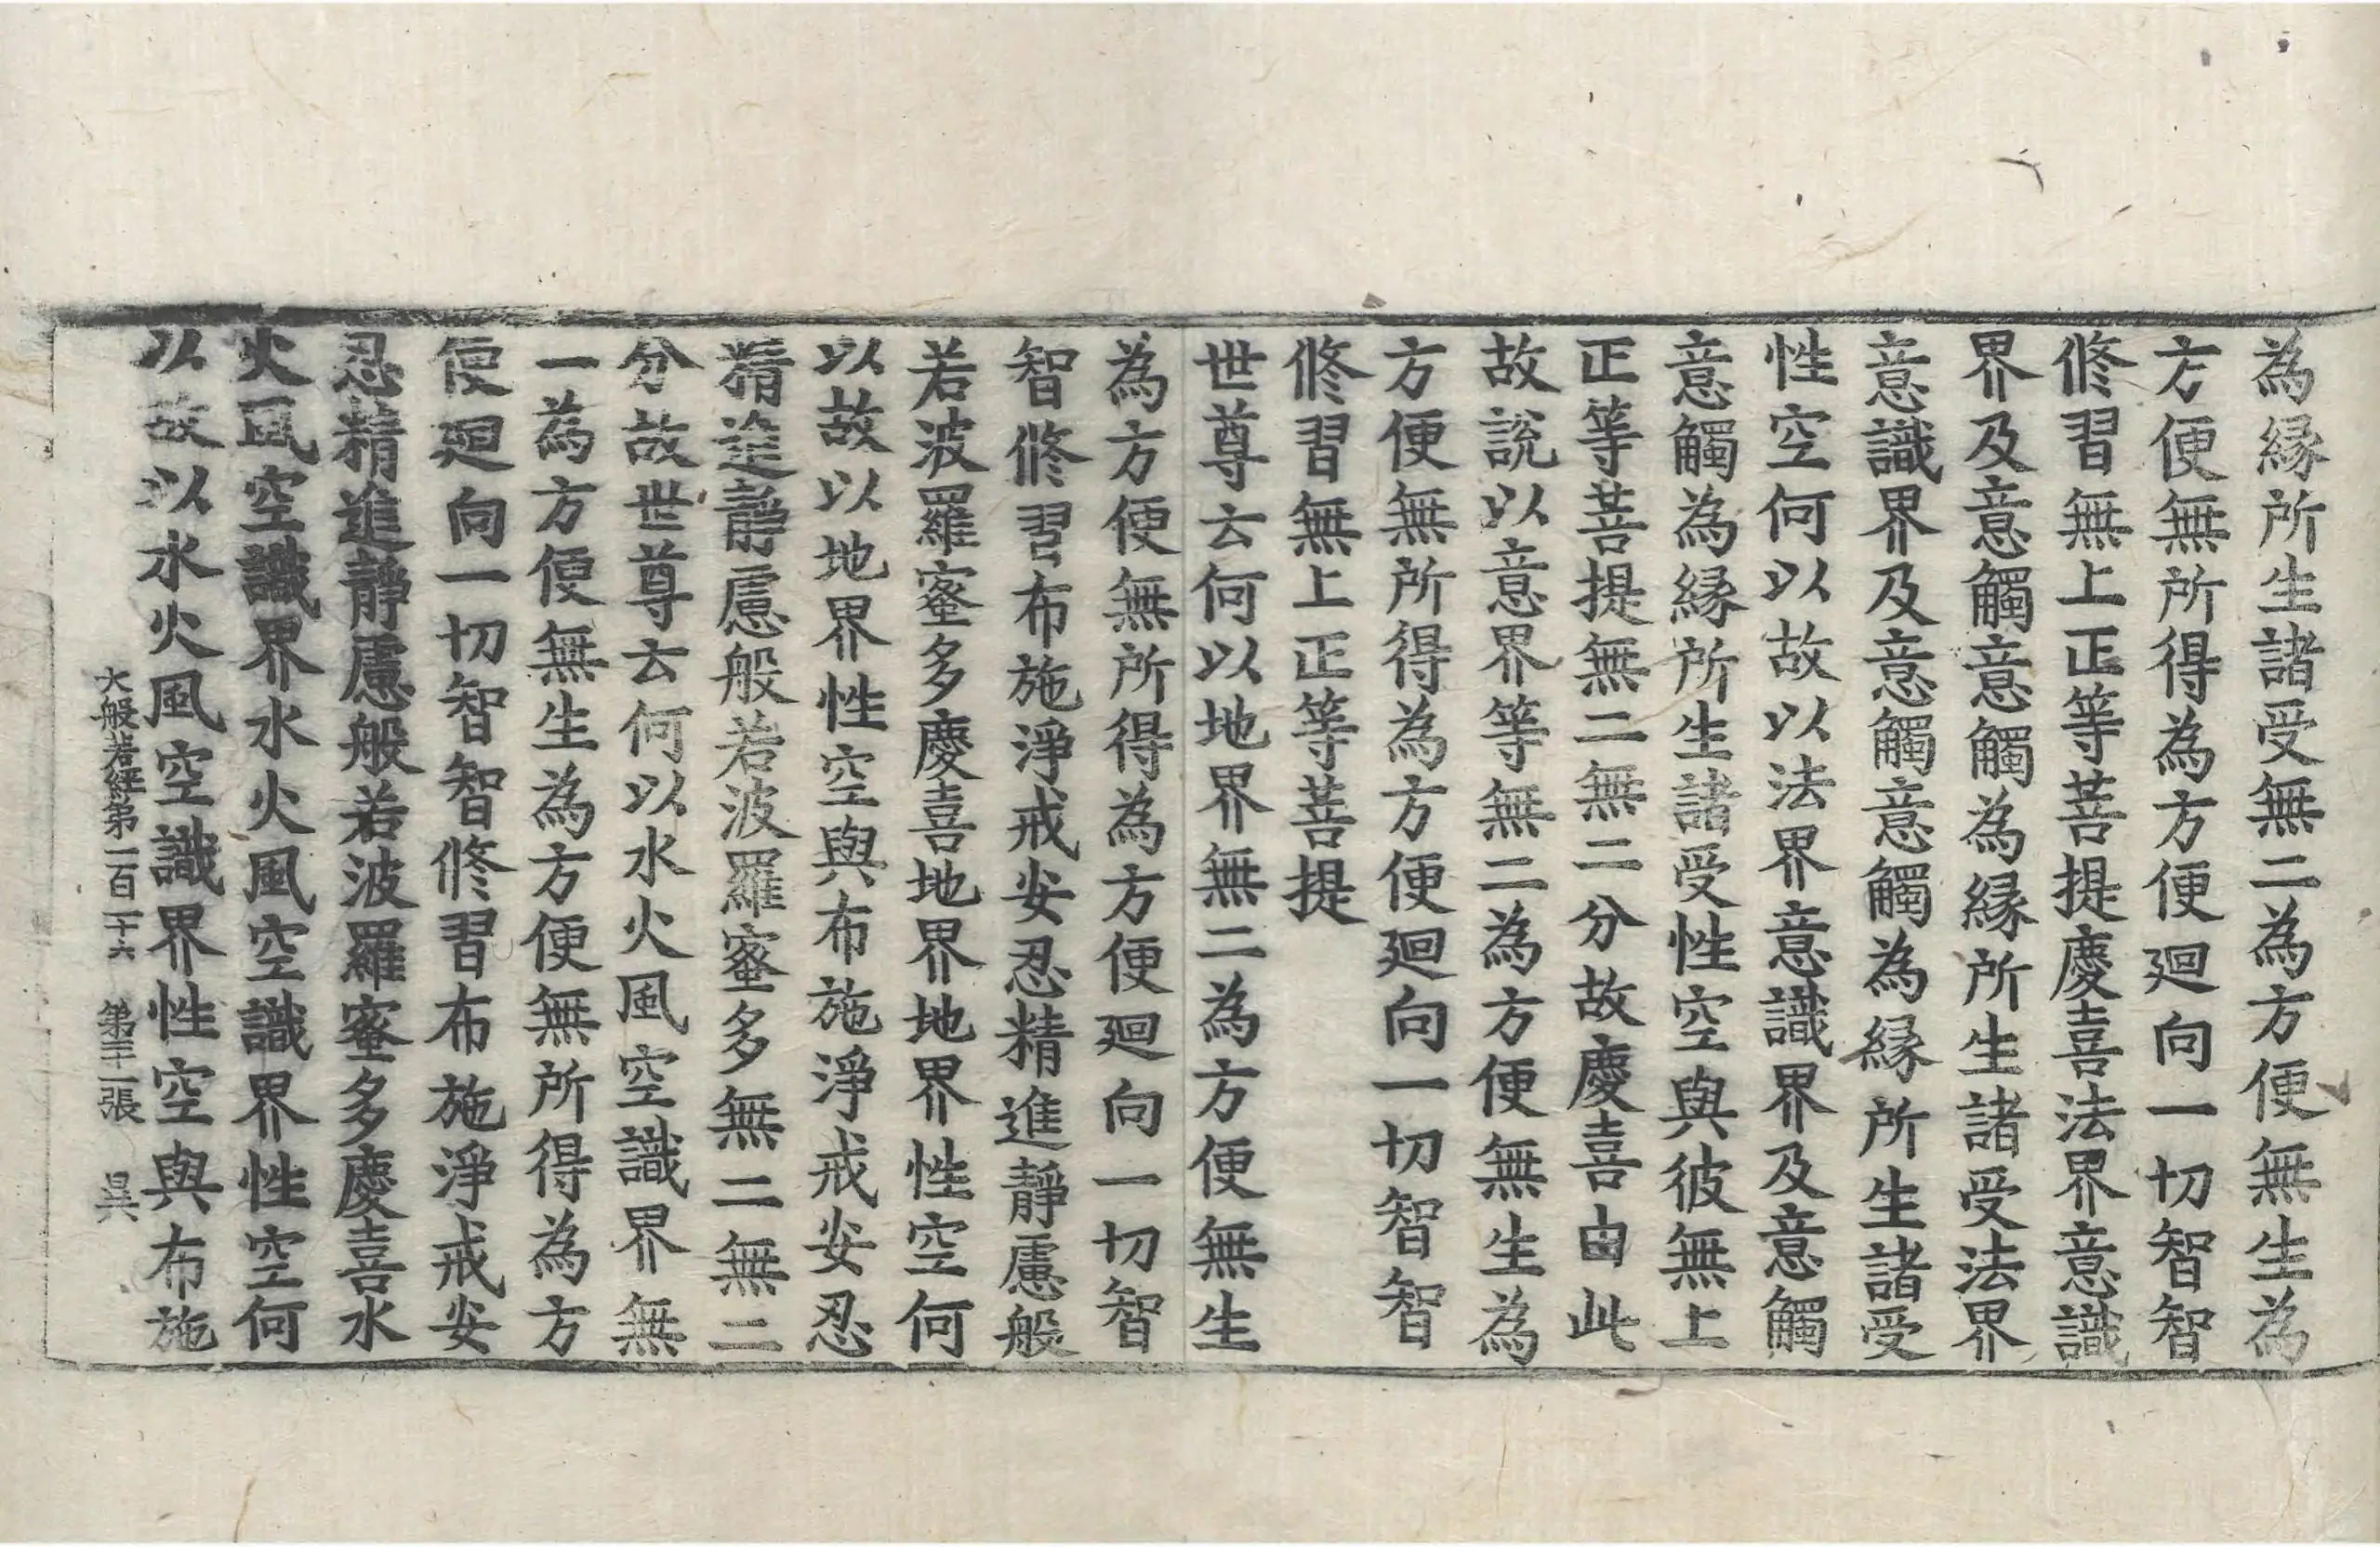 為縁所生諸受無二為方便無生為
方便無所得為方便廻向一切智智
修習無上正等菩提慶喜法界意識
界及意觸意觸為縁所生諸受法界
意識界及意觸意觸為縁所生諸受
性空何以故以法界意識界及意觸
意觸為縁所生諸受性空與彼無上
正等菩提無二無二分故慶喜由此
故說以意界等無二為方便無生為
方便無所得為方便廻向一切智智
修習無上正等菩提
世尊云何以地界無二為方便無生
為方便無所得為方便廻向一切智
智修習布施淨戒安忍精進靜慮般
若波羅蜜多慶喜地界地界性空何
以故以地界性空與布施淨戒安忍
精進靜慮般若波羅蜜多無二無二
分故世尊云何以水火風空識界無
二為方便無生為方便無所得為方
便廻向一切智智修習布施淨戒安
忍精進靜慮般若波羅蜜多慶喜水
火風空識界水火風空識界性空何
以故以水火風空識界性空與布施
大般若經第一百一十六 第二十一張 昃